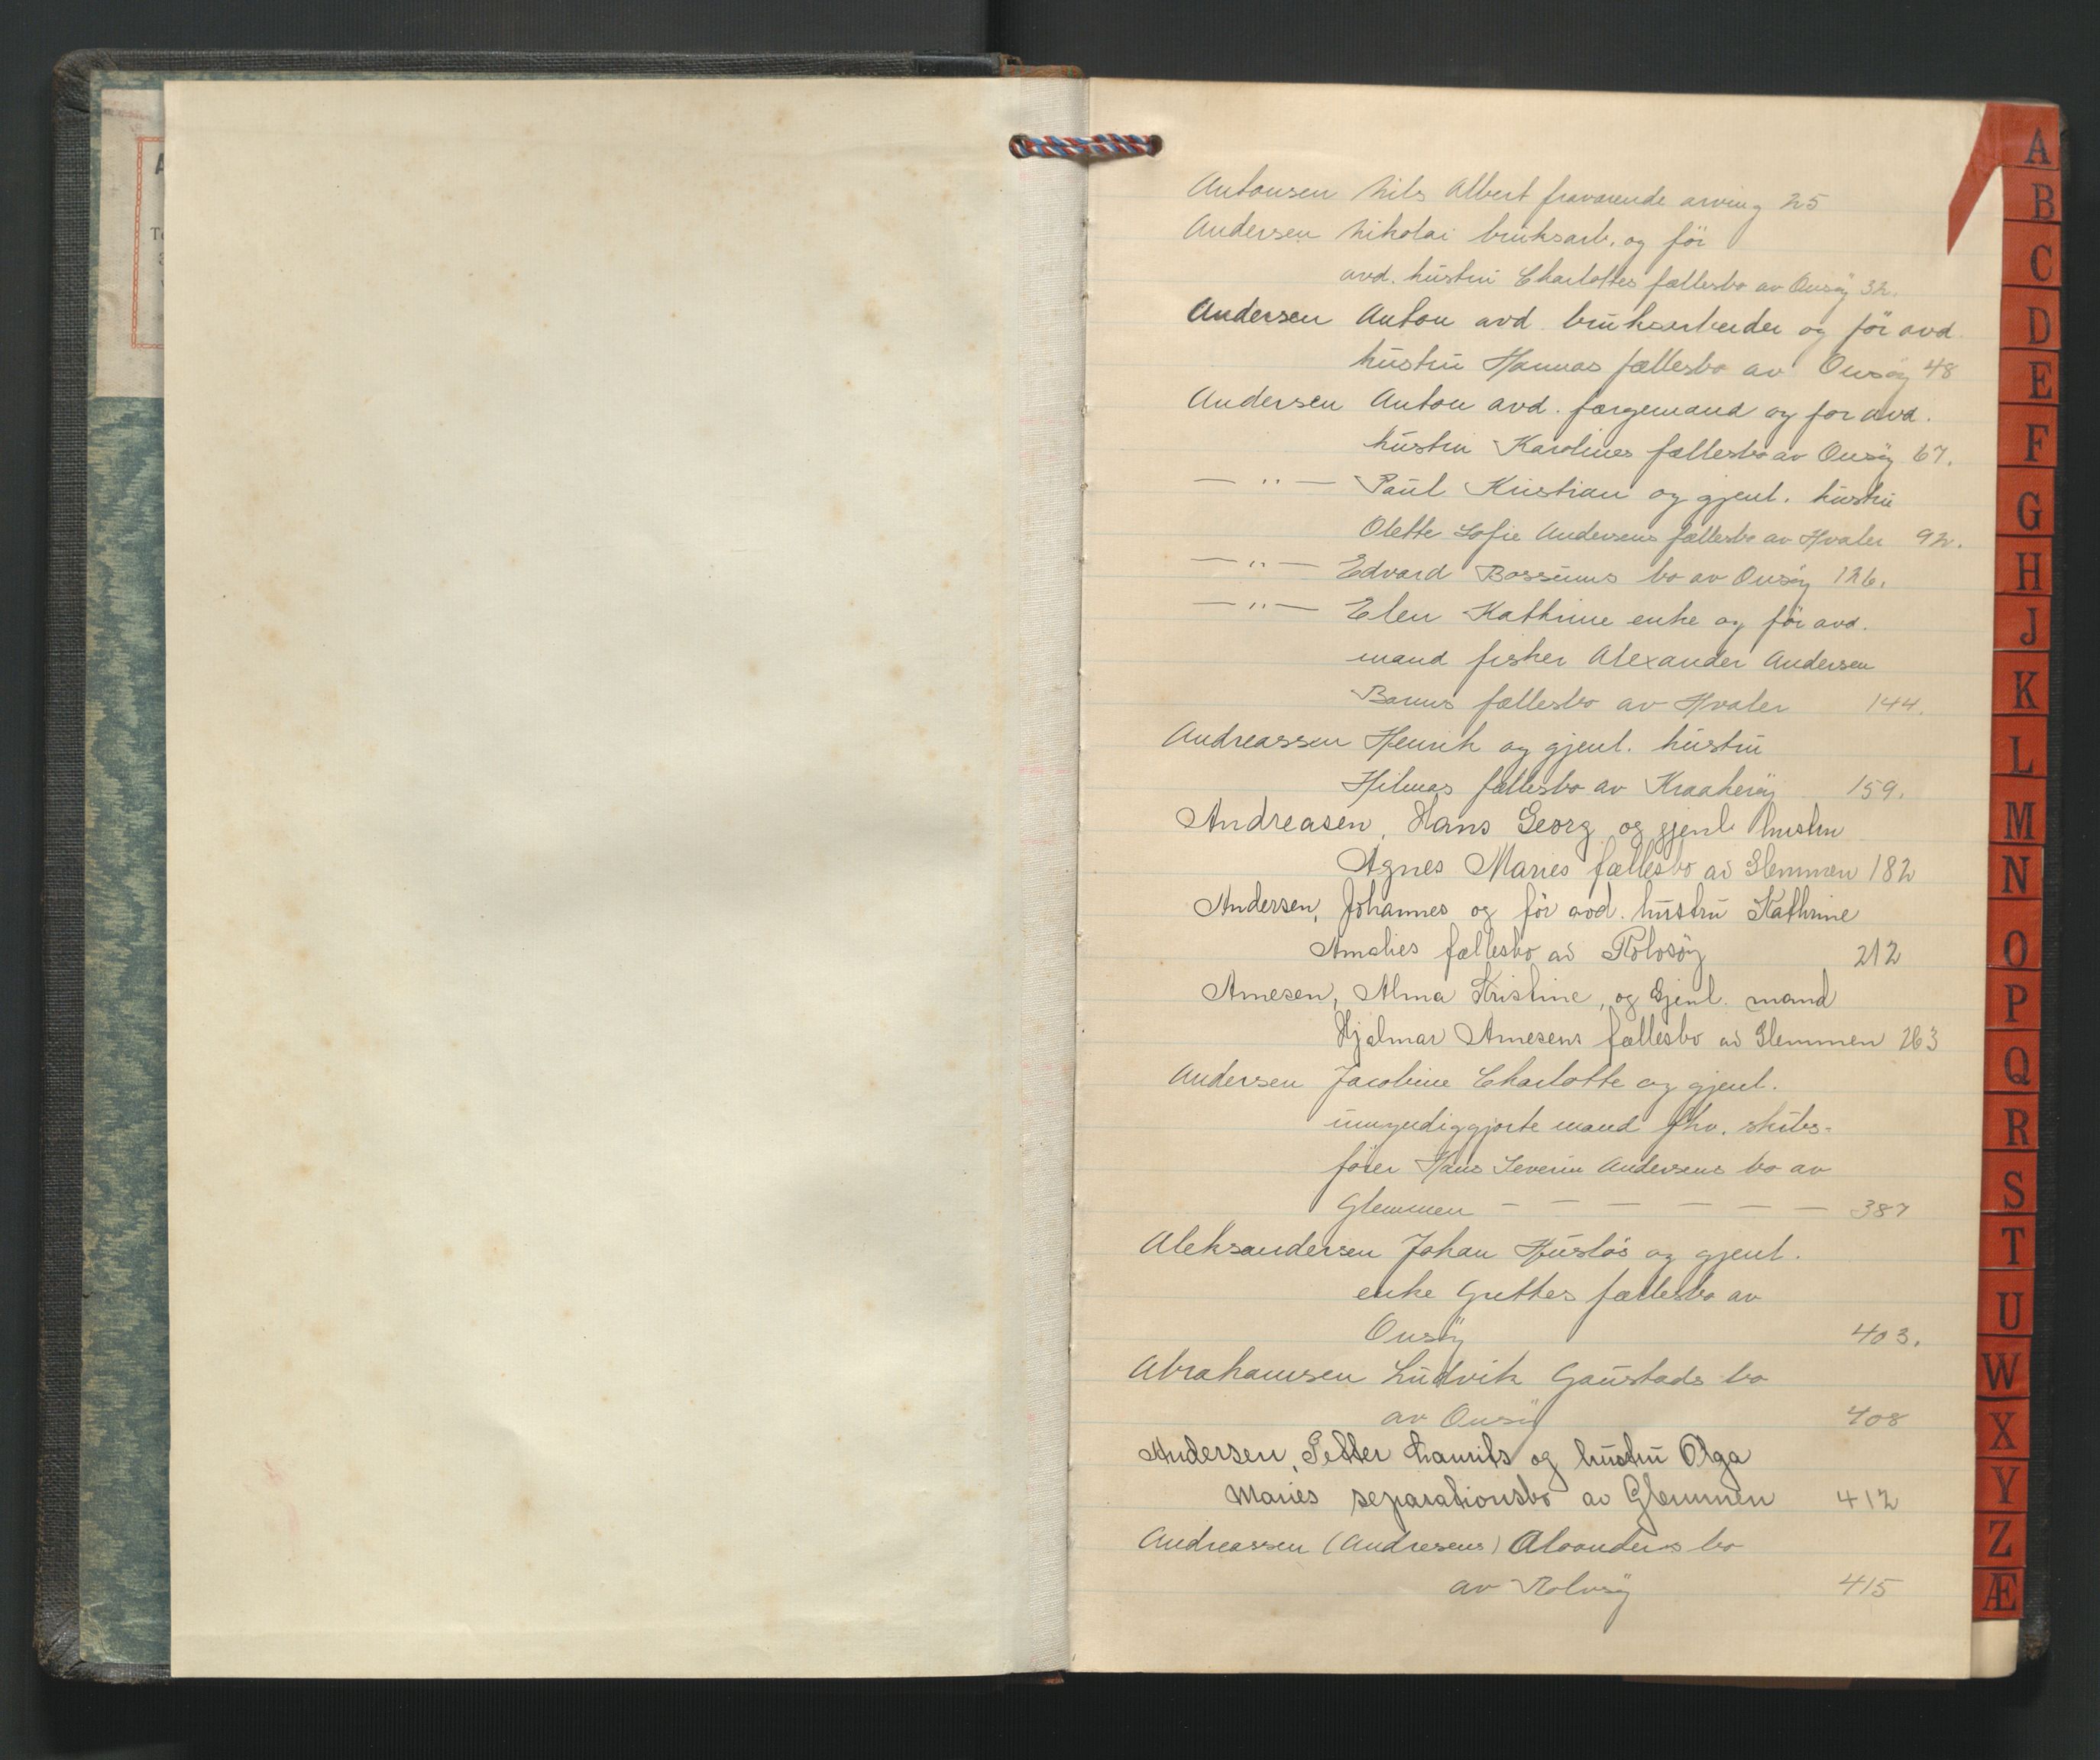 Antonsen Nils Albert fraværende arving 25
Andersen Nikolai bruksarb. og før
avd. hustru Charlottes fællesbo av Onsøy 32.
Andersen Anton avd. bruksarbeider og før avd.
hustru Hannas fællesbo av Onsøy 48
Andersen Anton avd. færgemand og før avd.
hustru Karolines fællesbo av Onsøy 67.
— " — Paul Kristian og gjenl. hustru
Olette Sofie Andersens fællesbo av Hvaler 92.
— " — Edvard Bossums bo av Onsøy 126.
— " — Elen Kathrine enke og før avd.
mand fisker Alexander Andersen
Barms fællesbo av Hvaler 144.
Andreassen Henrik og gjenl. hustru
Hilmas fællesbo av Kraakerøy 159.
Andreasen, Hans Georg og gjenl. hustru
Agnes Maries fællesbo av Glemmen 182
Andersen, Johannes og før avd. hustru Kathrine
Amalies fællesbo av Rolvsöy 212
Arnesen, Alma Kristine, og gjenl. mand
Hjalmar Arnesens fællesbo av Glemmen 263
Andersen Jacobine Charlotte og gjenl.
umyndiggjorte mand fhv. skibs-
fører Hans Severin Andersens bo av
Glemmen — — — — — — 387
Aleksandersen Johan Husløs og gjenl.
enke Grethes fællesbo av
Onsøy 403.
Abrahamsen Ludvik Gaustads bo
av Onsøy 408
Andersen, Petter Laurits og hustru Olga
Maries separationsbo av Glemmen 412
Andreassen (Andresens) Alvanders bo
av Rolvsøy 415
A
B
C
D
E
F
G
H
J
K
L
M
N
O
P
Q
R
S
T
U
W
X
Y
Z
Æ